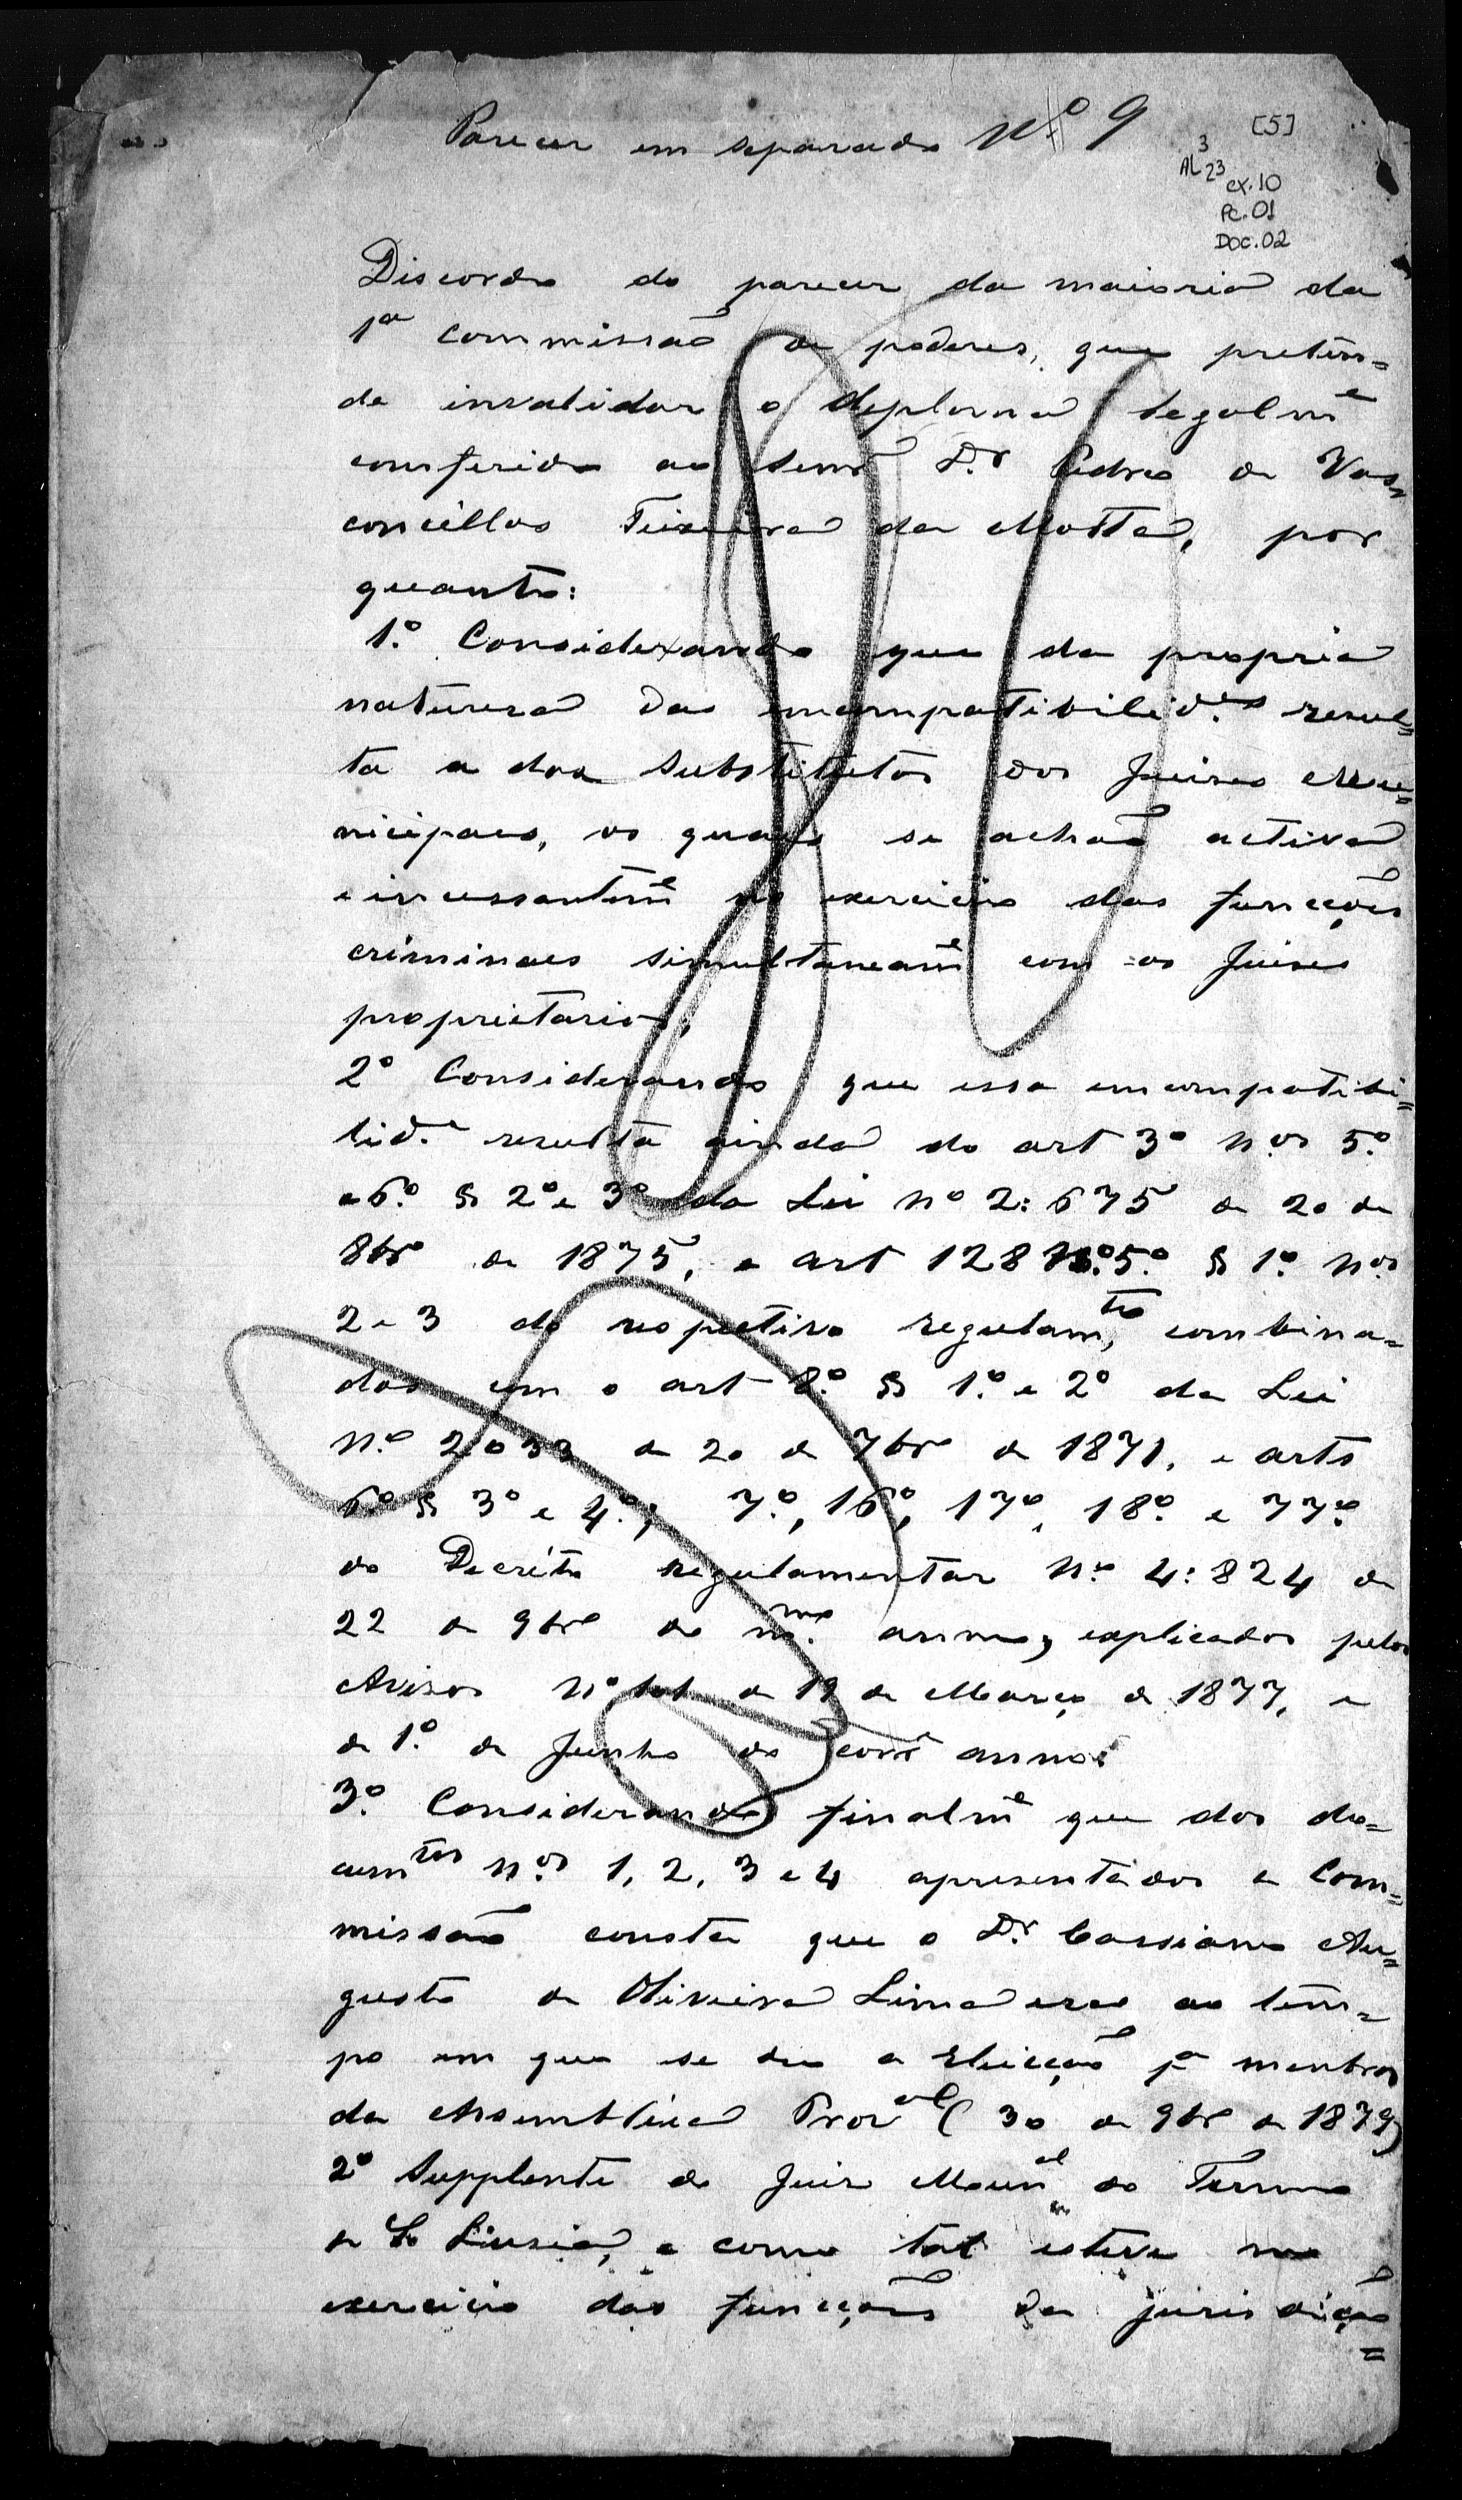 Parecer em separado Nº 9
[5]
AL 3 23
cx.10
Pc.01
DOC.02
Discordo do parecer da maioria da
1ª commissão de poderes, que preten=
de invalidar o deploma legalmᵉ
conferido ao Senr̃ Dr. Pedro de Vas=
concellos Teixeira da Motta, por
quanto:
1º Considerando que da propria
naturesa das incompatibilidᵉˢ resul=
ta a dos Substitutos dos Juises Mu=
nicipaes, os quaes se achaõ activa
e incessantemᵉ no exercicio das funcções
criminaes simultaneamᵉ com os Juises
proprietarios,
2º Considerando que essa incompatibi=
lidᵉ resulta ainda do art 3º nºs 5º
e 6º §§ 2º e 3º da Lei nº 2:675 de 20 de
8brº de 1875, e art 128 5º § 1º nºs
2 e 3 do respectivo regulamᵗᵒ, combina=
dos com o art 8º §§ 1º e 2º da Lei
Nº 2033 de 20 de 7brº de 1871, e arts
6º §§ 3º e 4º; 7º, 16º, 17º, 18º e 77º
do Decreto regulamentar Nº 4:824 de
22 de 9brº do mᵐᵒ anno, explicados pelos
Avisos Nº de 19 de Março de 1877, e
de 1º de Junho do corrᵉ anno:
3º Considerando finalmᵉ que dos do=
cumᵗᵒˢ nºs 1, 2, 3 e 4 apresentados a Com=
missaõ consta que o Dr. Cassiano Au=
gusto de Oliveira Lima era ao tem=
po em que se deu a Eleicçaõ pª menbros
da Assembleia Provᵃˡ (30 de 9brº de 1879)
2º Supplente do Juis Munᵃˡ do Termo
de Sᵗᵃ Lusia, e como tal esteve no
exercicio das funcções da jurisdiçaõ=